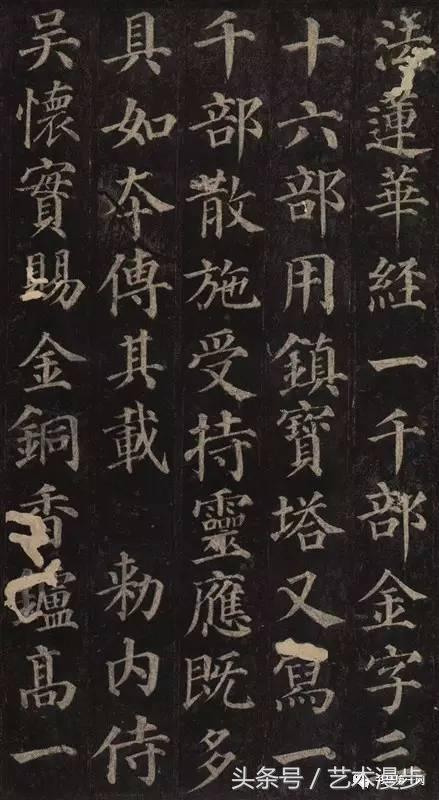 法蓮華經一千部金字三
十六部用鎮寶塔又寫一
千部散施受持靈應既多
具如夲傳其載 勑內侍
吳懷實賜金銅香鑪高一
头条号 / 艺术漫步